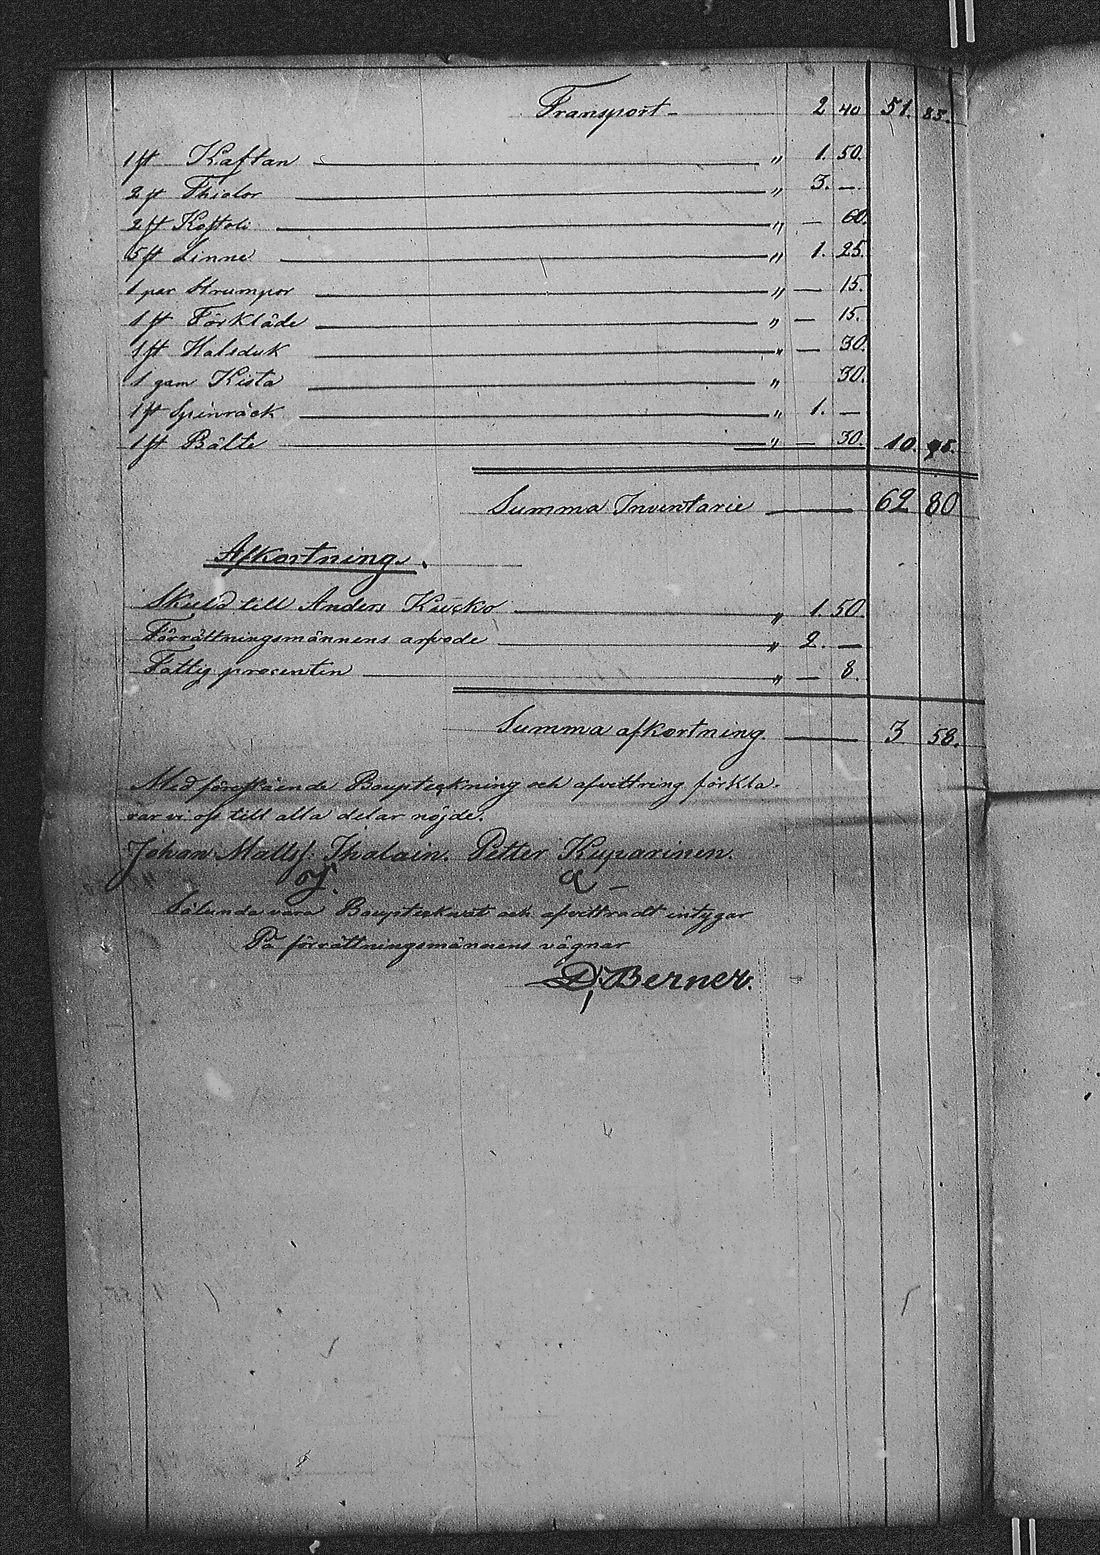 Transport - 2 40 51. 85.
1 st Kaftan " 1. 50.
2 st " 3. —.
2 st " — 60.
5 st Linne " 1. 25.
1 par Strumpor " — 15.
1 st Förkläde " — 15.
1 st Halsduk " — 30.
1 gam Kista " 30.
1 st Spinråck " 1. —
1 st Bälte " — 30. 10. 95.
Summa Inventarie 62 80
Afkortning.
Skuld till Anders Kucko " 1. 50.
Förrättningsmännens arfvode " 2. —
Fattig procenten " — 8.
Summa afkortning. 3 58.
Med förestående Boupteckning och afvittring förkla-
rar vi oss till alla delar nöjde.
Johan Matts: Ihalain. Petter Kuparinen.
Sålunda vara Boupteknat och afvittradt intygar
På förrättningsmännens vägnar
D. Berner.